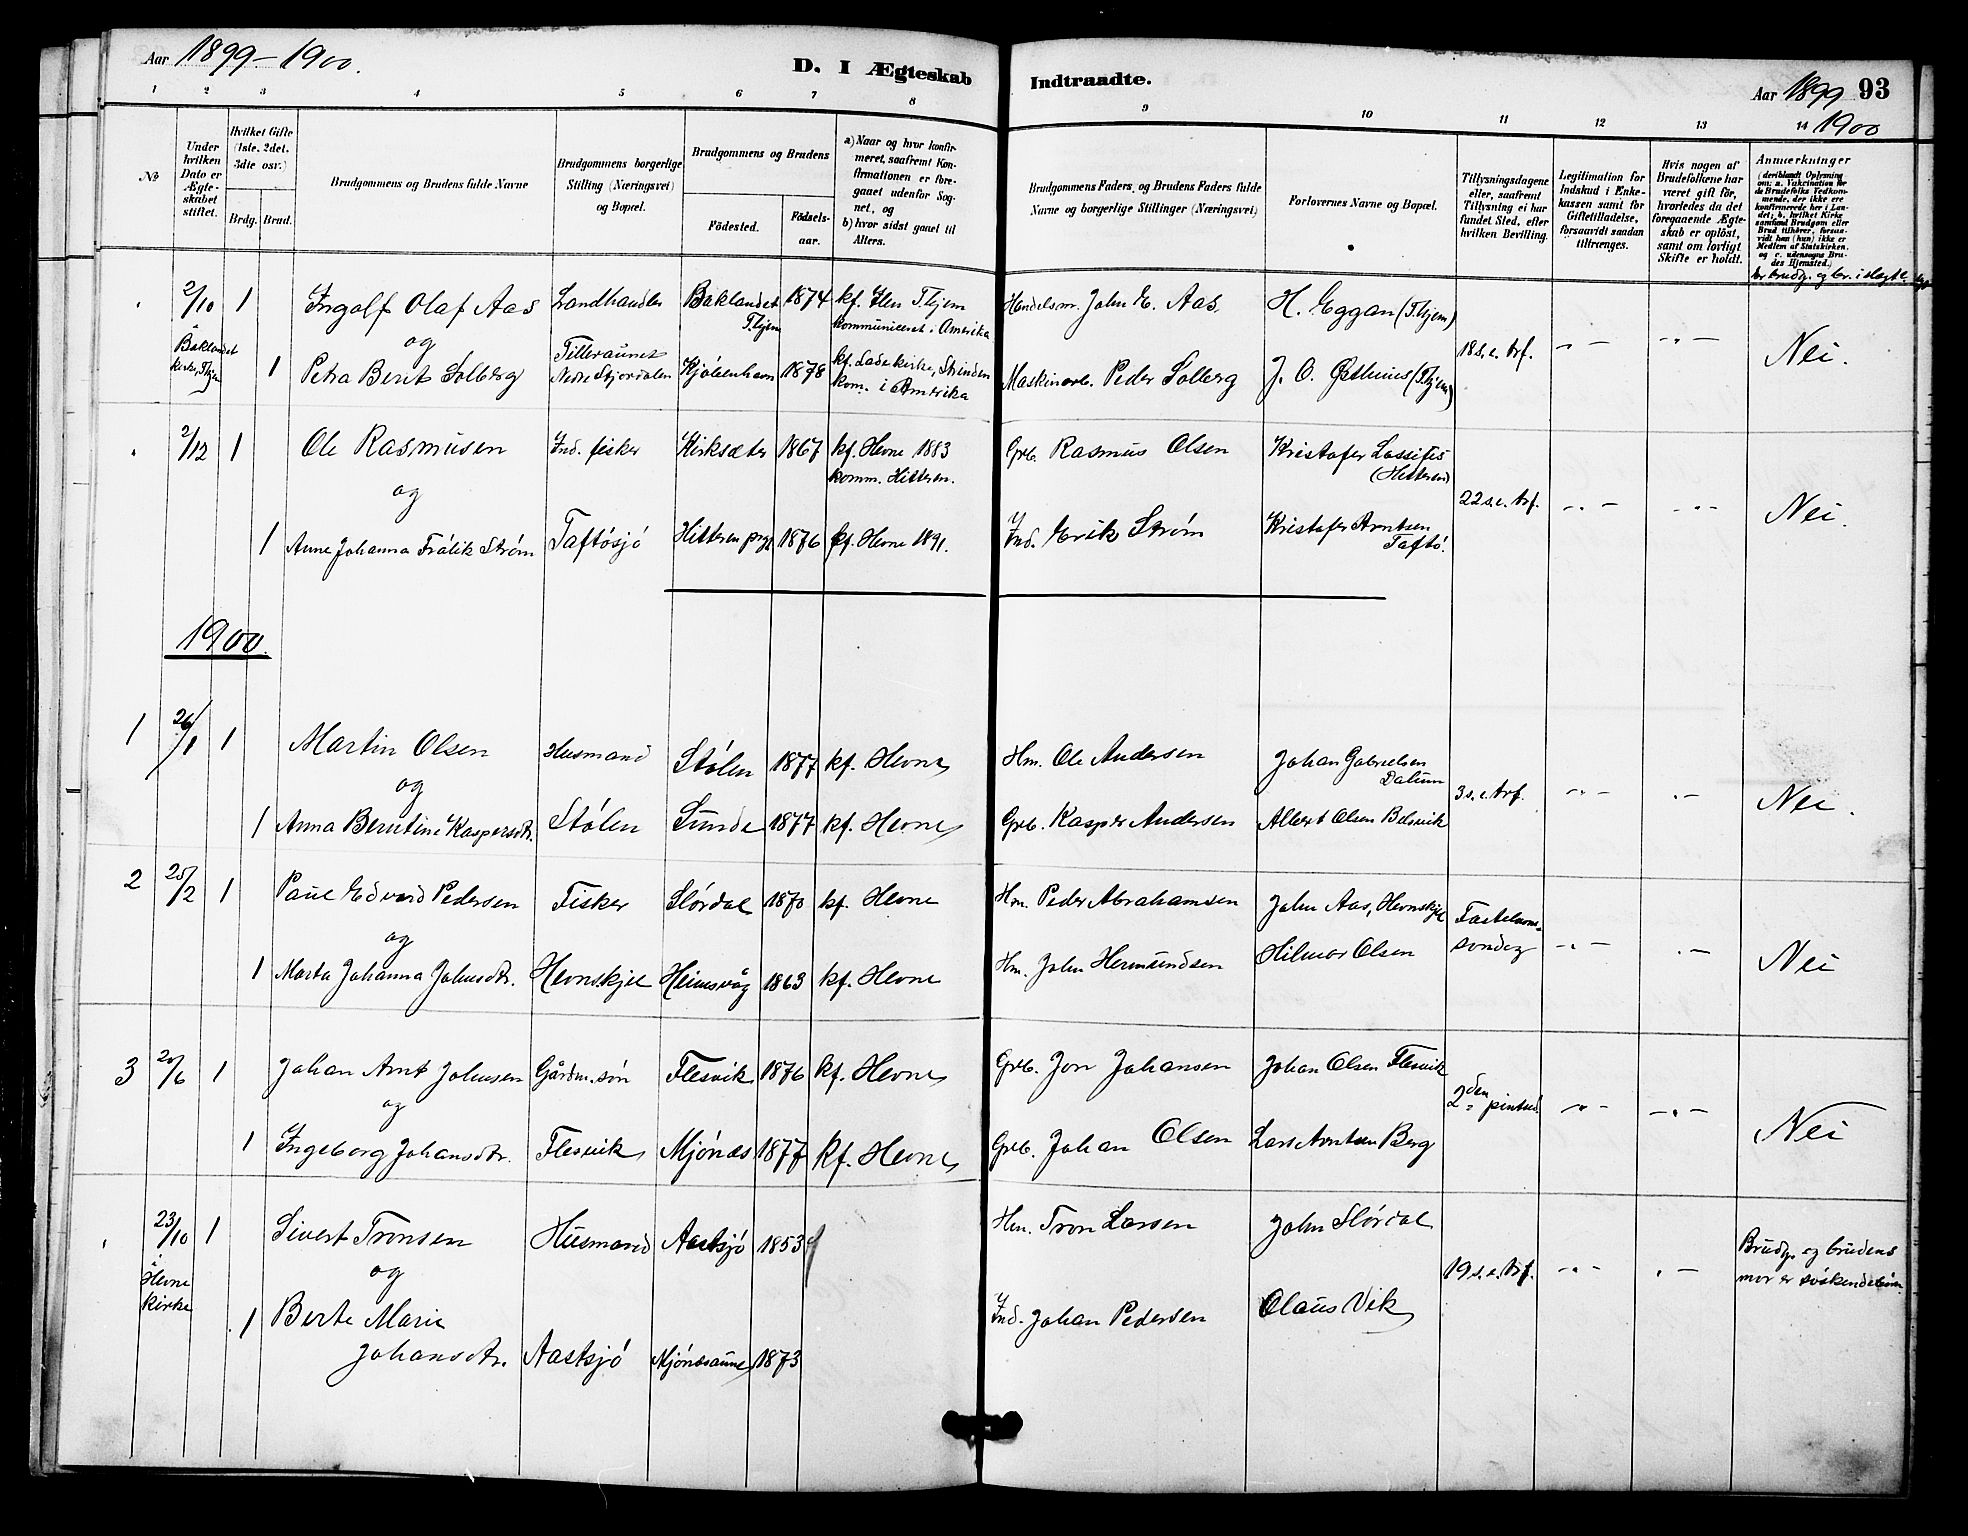 Aar 1899–1900.
D. I Ægteskab Indtraadte.
Aar 1899 93
1900
1 2 3 4 5 6 7 8 9 10 11 12 13 14
No.
Under hvilken Dato er Ægteskabet stiftet.
Hvilket Gifte (1ste, 2det, 3die osv.)
Brdg. Brud.
Brudgommens og Brudens fulde Navne
Brudgommens borgerlige Stilling (Næringsvei) og Bopæl.
Brudgommens og Brudens
Fødested. Fødselsaar.
a) Naar og hvor konfirmeret, saafremt Konfirmationen er foregaaet udenfor Sognet, og
b) hvor sidst gaaet til Alters.
Brudgommens Faders og Brudens Faders fulde Navne og borgerlige Stillinger (Næringsvei)
Forlovernes Navne og Bopæl.
Tillysningsdagene eller, saafremt Tillysning ei har fundet Sted, efter hvilken Bevilling.
Legitimation for Indskud i Enkekassen samt for Giftetilladelse, forsaavidt saadan tiltrænges.
Hvis nogen af Brudefolkene har været gift før, hvorledes da det foregaaende Ægteskab er opløst, samt om lovligt Skifte er holdt.
Anmærkninger (deriblandt Oplysning om: a. Vakcination for de Brudefolks Vedkommende, der ikke ere konfirmerede her i Landet; b. hvilket Kirkesamfund Brudgom eller Brud tilhører, forsaavidt han (hun) ikke er Medlem af Statskirken. og c. udensogns Brudes Hjemsted.)
2/10 1 Ingolf Olaf Aas Landhandler Baklandet 1874 kf. Ilen T.hjem Handelsm. John E. Aas. H. Eggan (T.hjem)
å og T.hjem kommuniceret i Amerika
Baklandet kirke, T.hjem 1 Petra Berit Solberg Tilleraunet Nedre Stjørdalen Kjøbenhavn 1878 kf. Lade kirke, Strinden kom. i Amerika Maskinarb. Peder Solberg J. O. Østhuus (T.hjem) 18 s. e. trf. Nei.
2/12 1 Ole Rasmusen Ind. fisker Kirksæter 1867 kf. Hevne 1883 Grb. Rasmus Olsen Kristofer
og komm. Hitteren.
1 Anne Johanna Strøm Taftøsjø Hitteren prgj. 1876 kf. Hevne 1891. Ind. Erik Strøm Kristofer Arntsen Taftø. 22 s. e. trf. Nei.
1900.
1 26/1 1 Martin Olsen Husmand Stølen 1877 kf. Hevne Hm. Ole Andersen Johan Gabrielsen Dalum
og
1 Anna Berntine Kaspersdtr. Stølen Sunde 1877 kf. Hevne Grb. Kasper Andersen Albert Olsen Belsvik 3 s. e. trf. Nei.
2 25/2 1 Paul Edvard Pedersen Fisker Slørdal 1870 kf. Hevne Hm. Peder Abrahamsen John Aas, Hevnskjel
og
1 Marta Johanna Johnsdtr. Hevnskjel Heimsvåg 1863 kf. Hevne Hm. John Hermundsen Hilmar Olsen Fastelavnssøndag Nei
3 20/6 1 Johan Arnt Johnsen Gårdm. søn Flesvik 1876 kf. Hevne Grb. Jon Johansen Johan Olsen Flesvik
og
1 Ingeborg Johansdtr. Flesvik Mjønæs 1877 kf. Hevne Grb. Johan Olsen Lars Arntsen Berg 2den pintsed. Nei
23/10 1 Sivert Tronsen Husmand Aastsjø 1853 Hm. Tron Larsen John Slørdal
å Hevne kirke og
1 Berte Marie Johansdtr. Aastsjø Mjønesaune 1873 Ind. Johan Pedersen Olaus Vik 19 s. e. trf. Brudg. og brudens mor er søskendebørn